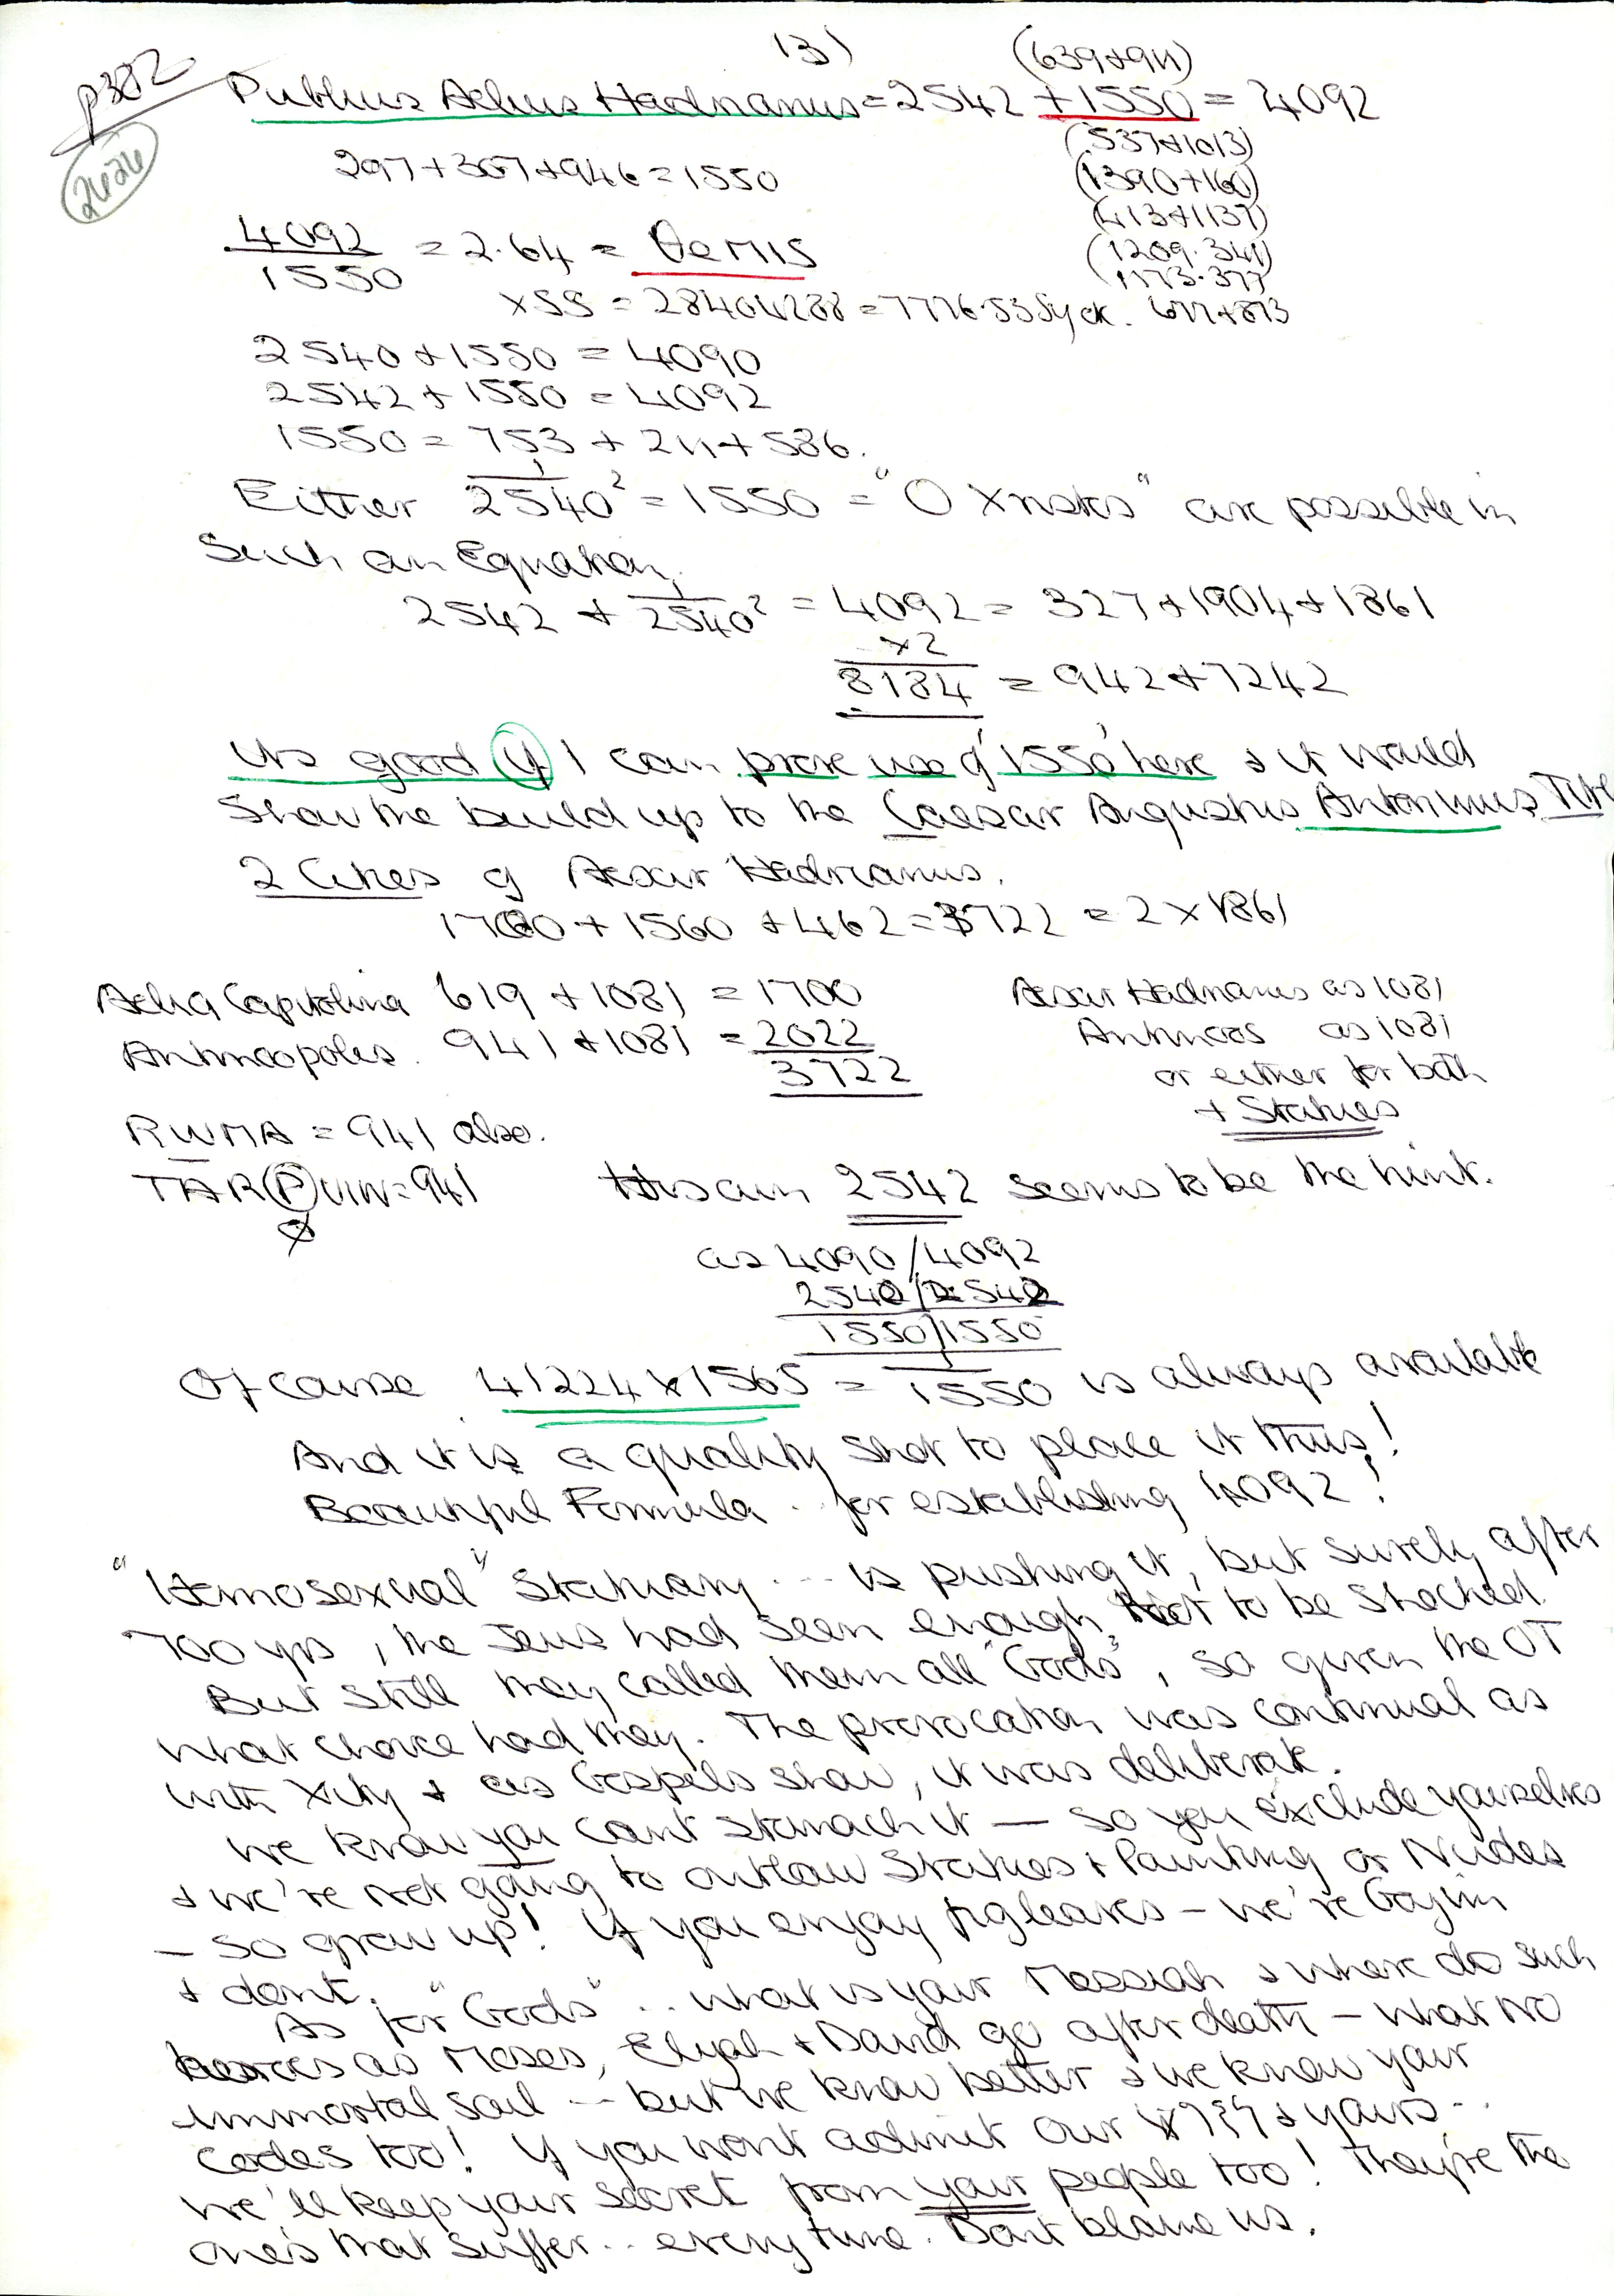 13)
p382
2424
(639+911)
Publius Aelius Hadrianus = 2542 + 1550 = 4092
(537+1013)
297+307+946=1550
(1390+160)
(413+1137)
4092 = 2.64 = θεΜΙS
1550
(1209.341)
1173.377
×SS = = 7776.
677+873
2540+1550 = 4090
2542 + 1550 = 4092
1550 = 753 + 211 + 586.
Either 1/2540² = 1550 = "O Xristos" are possible in
Such an Equation,
2542 + 1/2540² = 4092 = 327+1904+1861
×2
8184 = 942+7242
Its good if I can prove use of '1550' here & it would
Show the build up to the Caesar Augustus Antoninus Title
2 Cities of Aesar Hadrianus.
1700 + 1560 + 462 = 3722 = 2 × 1861
Aelia Capitolina 619 + 1081 = 1700
Aesar Hadrianus as 1081
Antinoopoles. 941 + 1081 = 2022
Antinoos as 1081
3722
or either for both
+ Statues
RWMA = 941 also.
TAR(P)UIN = 941
His own 2542 seems to be the hint.
as 4090/4092
2540/2542
1550/1550
Of course 41224 × 1565 = 1/1550 is always available
And it is a quality shot to place it thus!
Beautiful Formula .. for establishing 4092!
"Homosexual" Statuary ... is pushing it, but surely after
700 yrs, the Jews had seen enough not to be shocked.
But still they called them all "Gods", so given the OT
what choice had they. The provocation was continual as
with Xity & as Gospels show, it was deliberate.
We know you cant stomach it — so you exclude yourselves
& we're not going to outlaw Statues & Painting or Nudes
— so grow up! If you enjoy figleaves — we're Goyim
& dont.
As for "Gods" .. what is your Messiah & where do such
heroes as Moses, Elijah & David go after death — what no
immortal soul ... but we know better & we know your
Codes too! If you wont admit our & yours ..
We'll keep your secret from your people too! They're the
one's that suffer .. every time. Dont blame us.